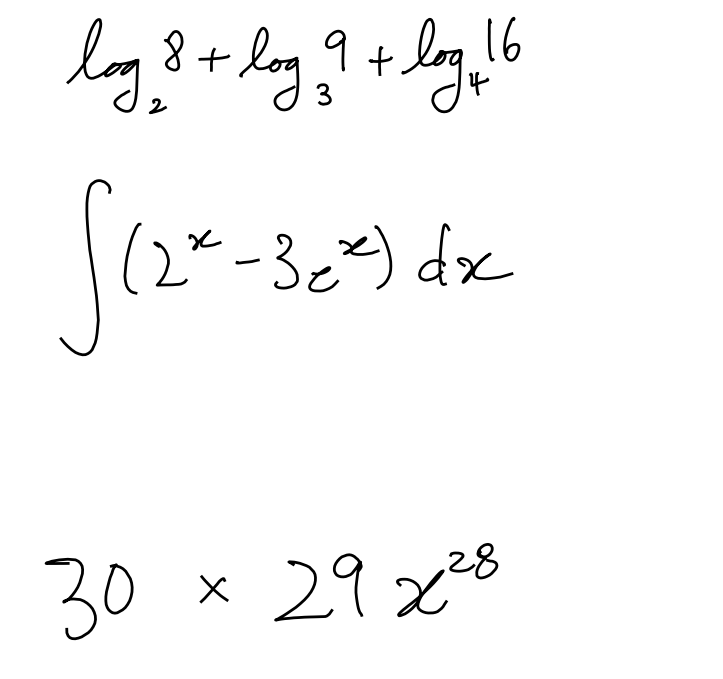 log₂ 8 + log₃ 9 + log₄ 16
∫(2ˣ - 3eˣ) dx
30 × 29 x²⁸